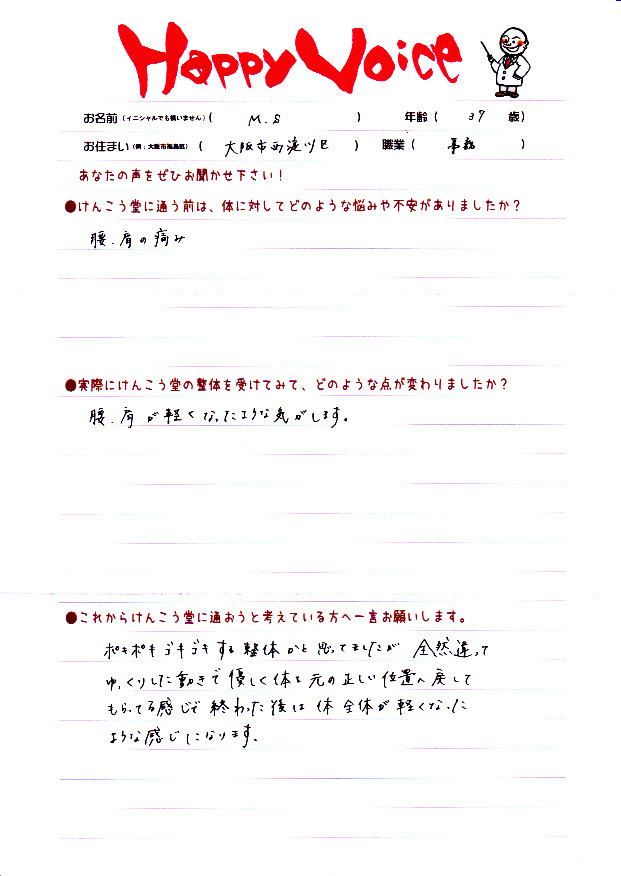 Happy Voice
お名前(イニシャルでも構いません)( M.S ) 年齢( 37 歳)
お住まい(例:大阪市福島区)( 大阪市西淀川区 ) 職業( 事務 )
あなたの声をぜひお聞かせ下さい!
●けんこう堂に通う前は、体に対してどのような悩みや不安がありましたか?
腰、肩の痛み
●実際にけんこう堂の整体を受けてみて、どのような点が変わりましたか?
腰、肩が軽くなったような気がします。
●これからけんこう堂に通おうと考えている方へ一言お願いします。
ポキポキゴキゴキする整体かと思ってましたが 全然違って
ゆっくりした動きで優しく体を元の正しい位置へ戻して
もらってる感じで 終わった後は体全体が軽くなった
ような感じになります。